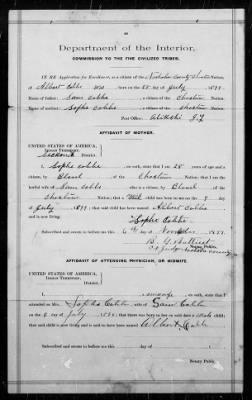 Department of the Interior,
COMMISSION TO THE FIVE CIVILIZED TRIBES.
IN RE Application for Enrollment, as a citizen of the Nation,
of Albert Cobbs born on the day of July , 1899.
Name of father: Sam Cobbs a citizen of the Choctaw Nation.
Name of mother: Sopha Cobbs a citizen of the Choctaw Nation.
Post Office,
AFFIDAVIT OF MOTHER.
UNITED STATES OF AMERICA
INDIAN TERRITORY
District.
I, Sopha Cobbs on oath, state that I am 25 years of age and a
citizen, by Blood of the Choctaw Nation; that I am the
lawful wife of Sam Cobbs who is a citizen, by Blood of the
Choctaw Nation; that a Male child was born to me on the day
of July 1899, that said child has been named Albert Cobbs
and is now living.
Sopha Cobbs
Subscribed and sworn to before me this 6th day of 1899.
Notary Public.
AFFIDAVIT OF ATTENDING PHYSICIAN, OR MIDWIFE.
UNITED STATES OF AMERICA
INDIAN TERRITORY
District.
I, a midwife on oath, state that I
attended on Mrs. Sopha Cobbs wife of Sam Cobbs
on the day of July , 189 ; that there was born to her on said date a Male child;
that said child is now living and is said to have been named Albert Cobbs
Subscribed and sworn to before me this day of , 1
Notary Public.